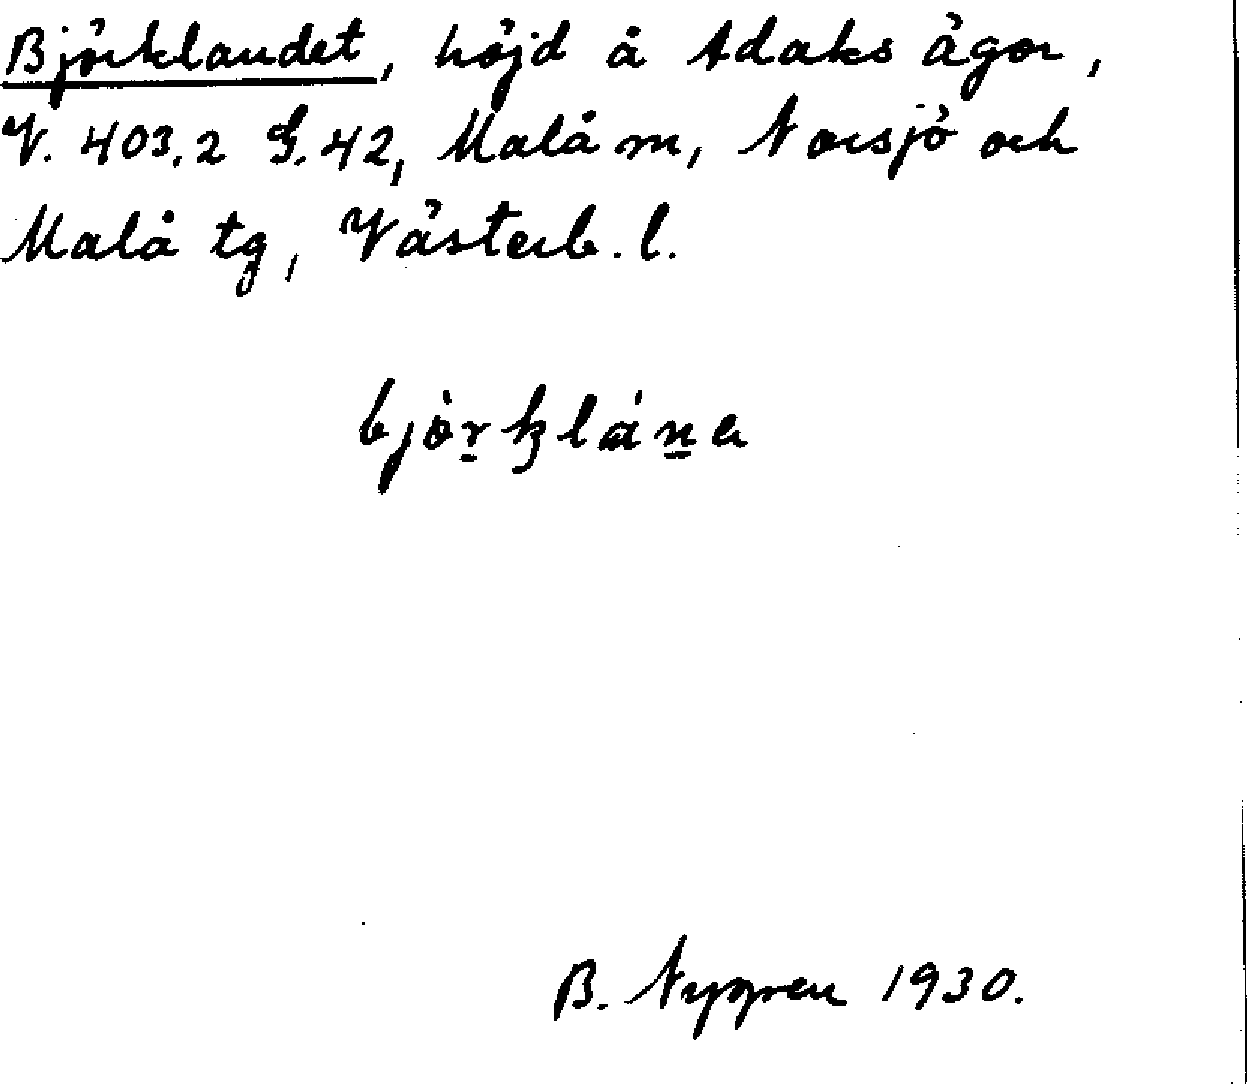 Björklandet, höjd å Adaks ägor,
V. 403,2 G. 42, Malå m, Norsjö och
Malå tg, Västerb. l.
bjòrkláne
B. Nygren 1930.